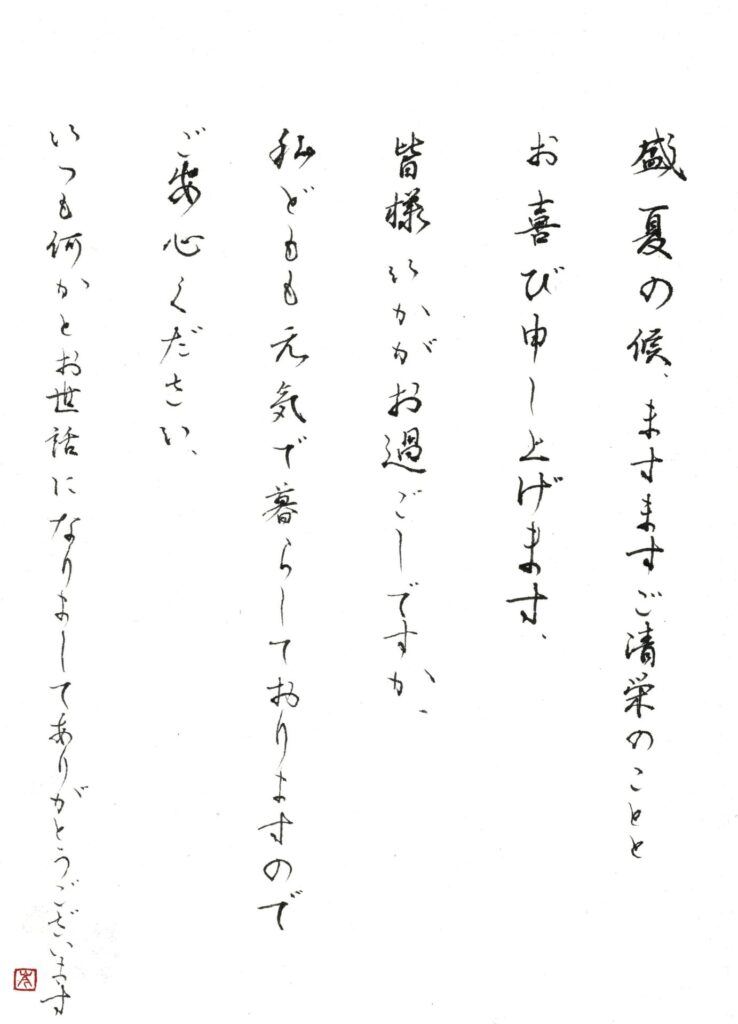 盛夏の候、ますますご清栄のことと
お喜び申し上げます、
皆様いかがお過ごしですか、
私どもも元気で暮らしておりますので
ご安心ください、
いつも何かとお世話になりましてありがとうございます